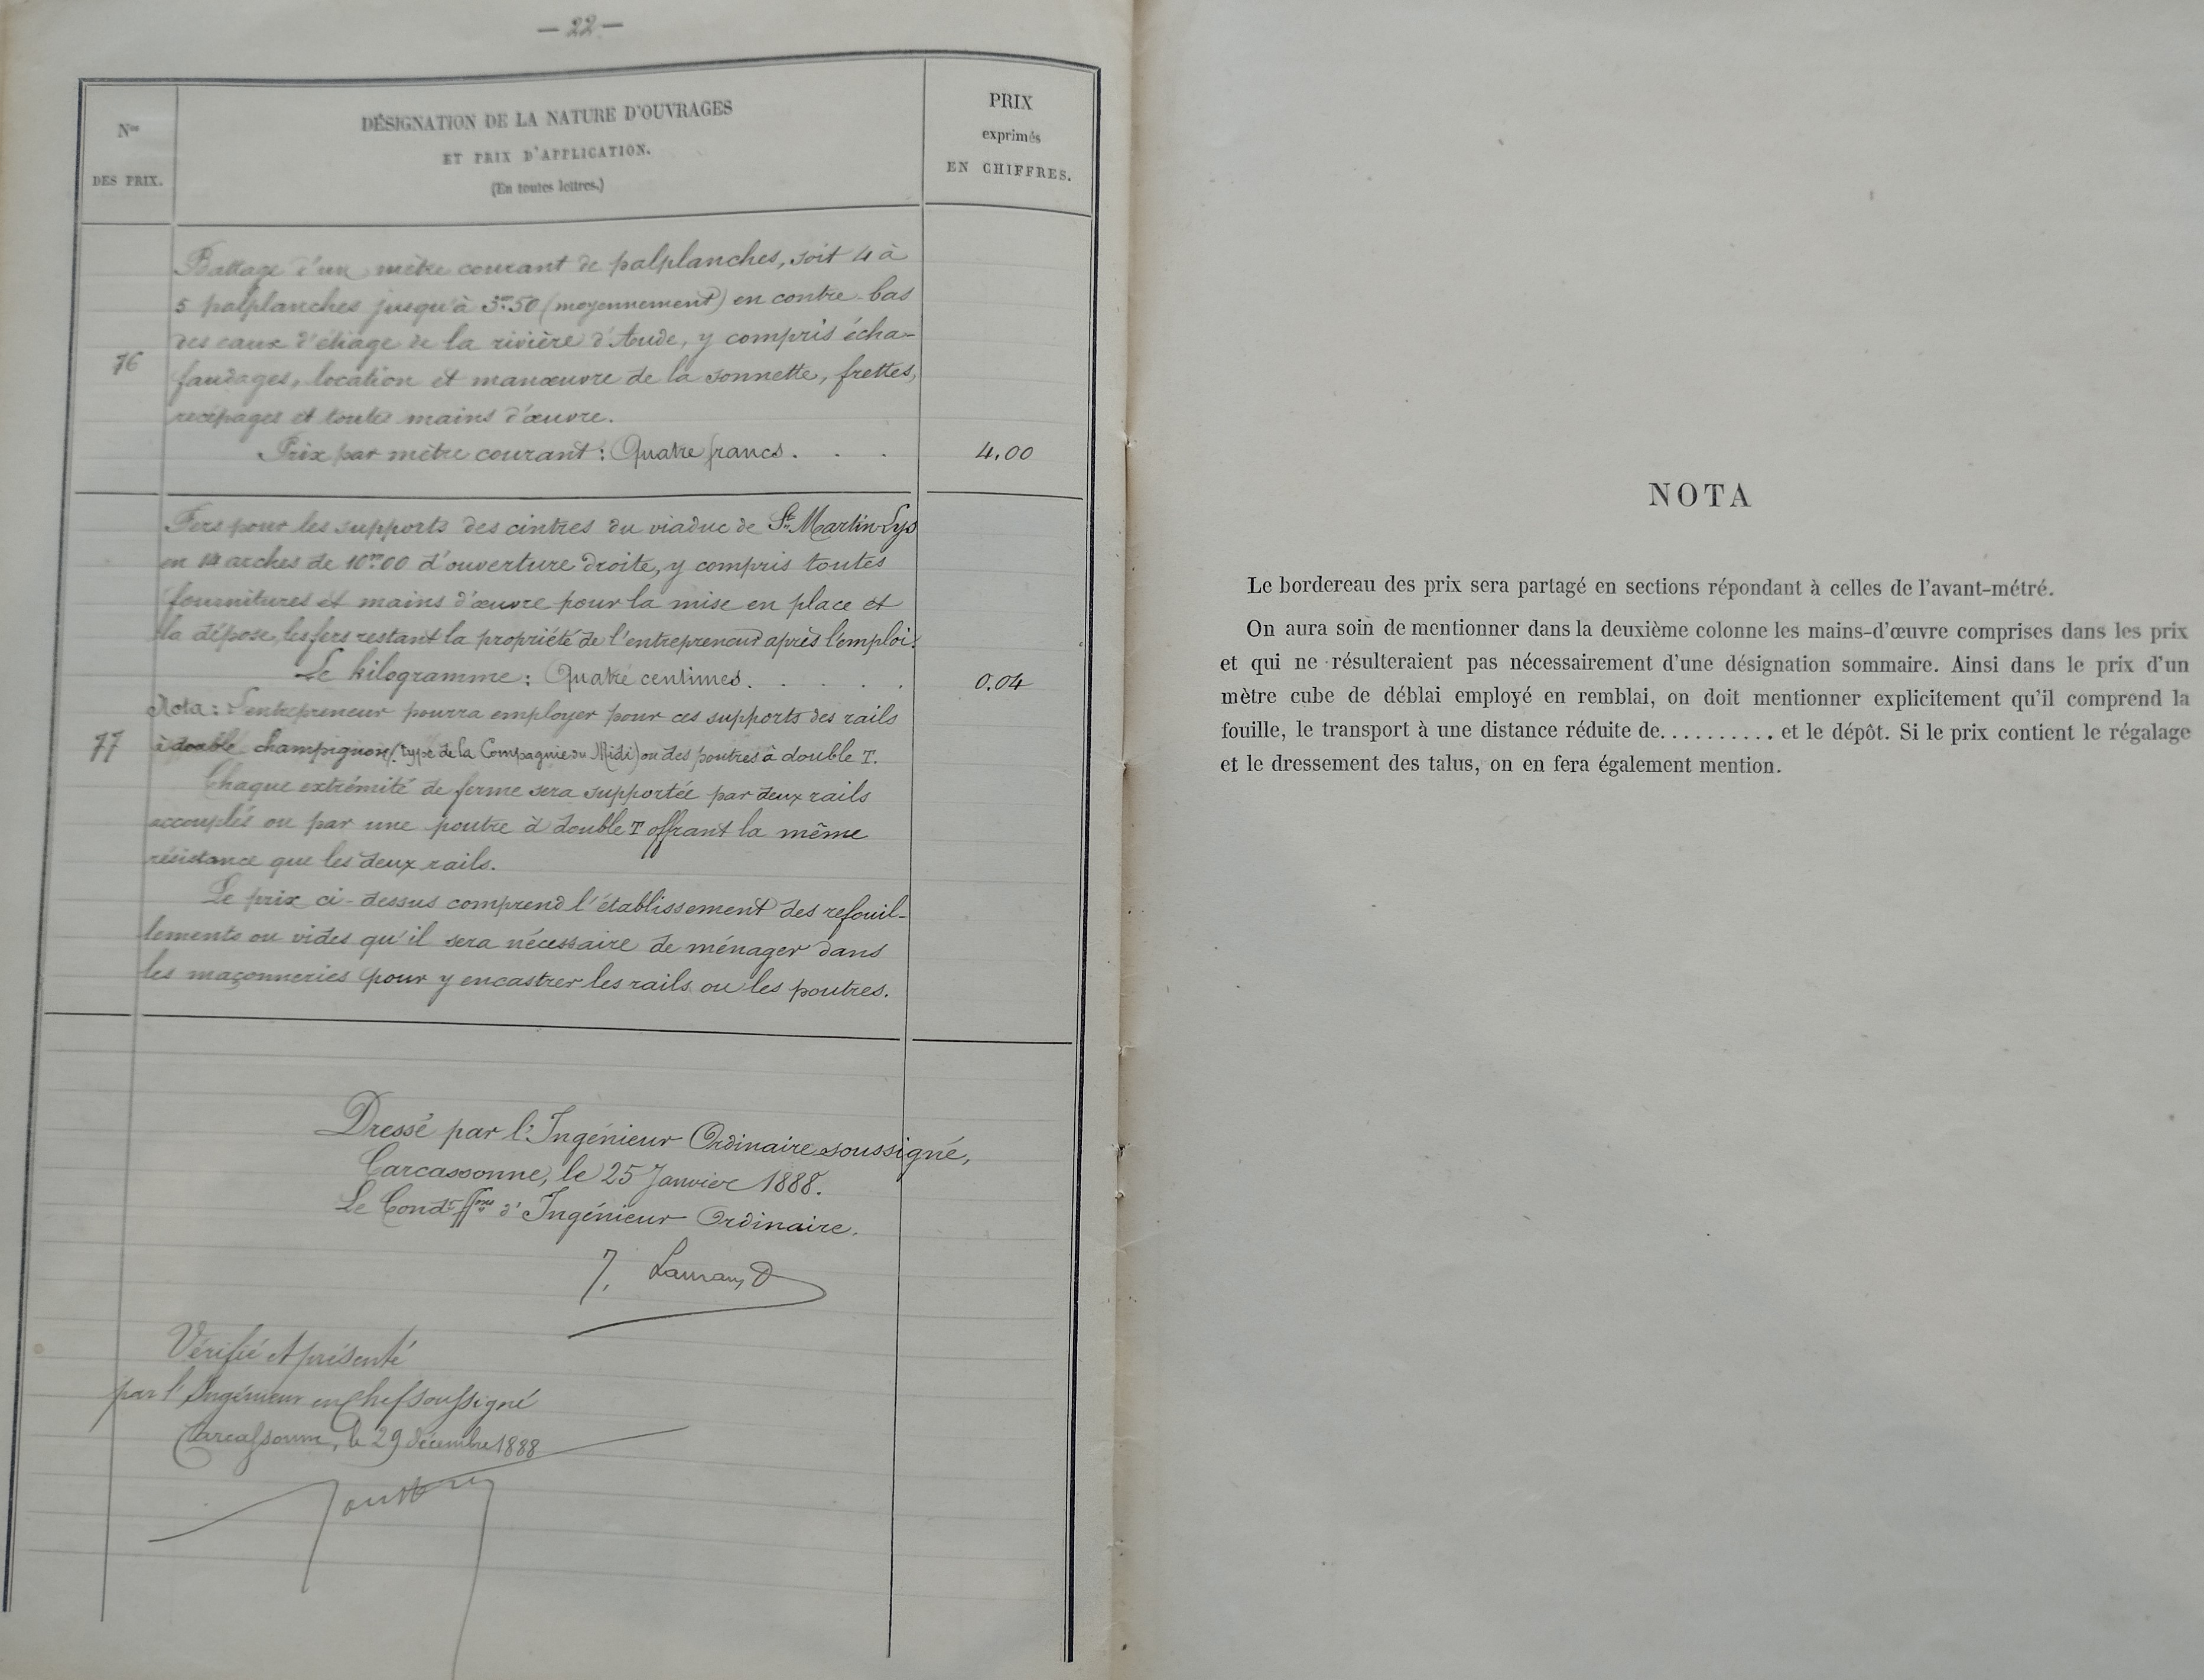 — 22 —
Nos
DES PRIX.
DÉSIGNATION DE LA NATURE D'OUVRAGES
ET PRIX D'APPLICATION.
(En toutes lettres.)
PRIX
exprimés
EN CHIFFRES.
76
Battage d'un mètre courant de palplanches, soit 4 à
5 palplanches jusqu'à 3m.50 (moyennement) en contre-bas
des eaux d'étiage de la rivière d'Aude, y compris écha-
faudages, location et manœuvre de la sonnette, frettes,
recépages et toutes mains d'œuvre.
Prix par mètre courant : Quatre francs . . . 4,00
77
Fers pour les supports des cintres du viaduc de St. Martin-Lys
en 14 arches de 10m.00 d'ouverture droite, y compris toutes
fournitures et mains d'œuvre pour la mise en place et
la dépose, les fers restant la propriété de l'entrepreneur après l'emploi.
Le kilogramme : Quatre centimes . . . . . 0.04
Nota : L'entrepreneur pourra employer pour ces supports des rails
à double champignon (type de la Compagnie du Midi) ou des poutres à double T.
Chaque extrémité de ferme sera supportée par deux rails
accouplés ou par une poutre à double T offrant la même
résistance que les deux rails.
Le prix ci-dessus comprend l'établissement des refouil-
lements ou vides qu'il sera nécessaire de ménager dans
les maçonneries pour y encastrer les rails ou les poutres.
Dressé par l'Ingénieur Ordinaire soussigné,
Carcassonne, le 25 Janvier 1888.
Le Condr ffons d'Ingénieur Ordinaire.
J. Lauraud
Vérifié et présenté
par l'Ingénieur en Chef soussigné
Carcassonne, le 29 décembre 1888
NOTA
Le bordereau des prix sera partagé en sections répondant à celles de l'avant-métré.
On aura soin de mentionner dans la deuxième colonne les mains-d'œuvre comprises dans les prix
et qui ne résulteraient pas nécessairement d'une désignation sommaire. Ainsi dans le prix d'un
mètre cube de déblai employé en remblai, on doit mentionner explicitement qu'il comprend la
fouille, le transport à une distance réduite de.......... et le dépôt. Si le prix contient le régalage
et le dressement des talus, on en fera également mention.